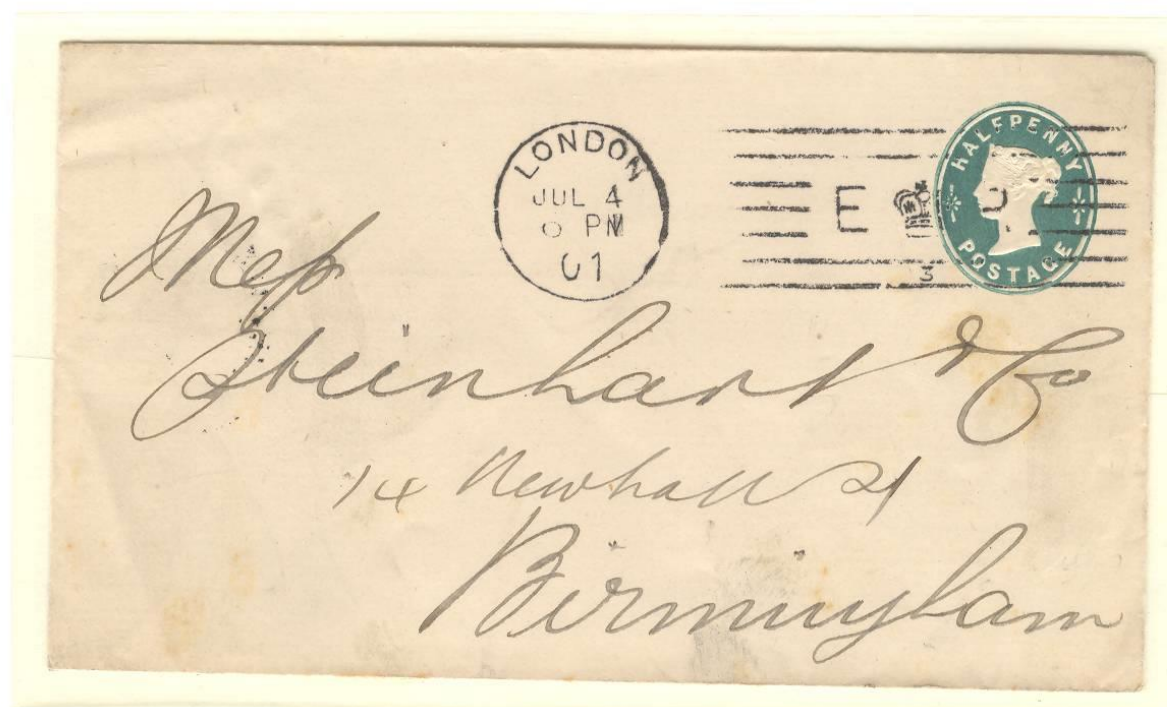 LONDON
JUL 4
PM
01
E R
3
HALFPENNY
POSTAGE
Mess
Steinhart & Co
14 Newhall St
Birmingham